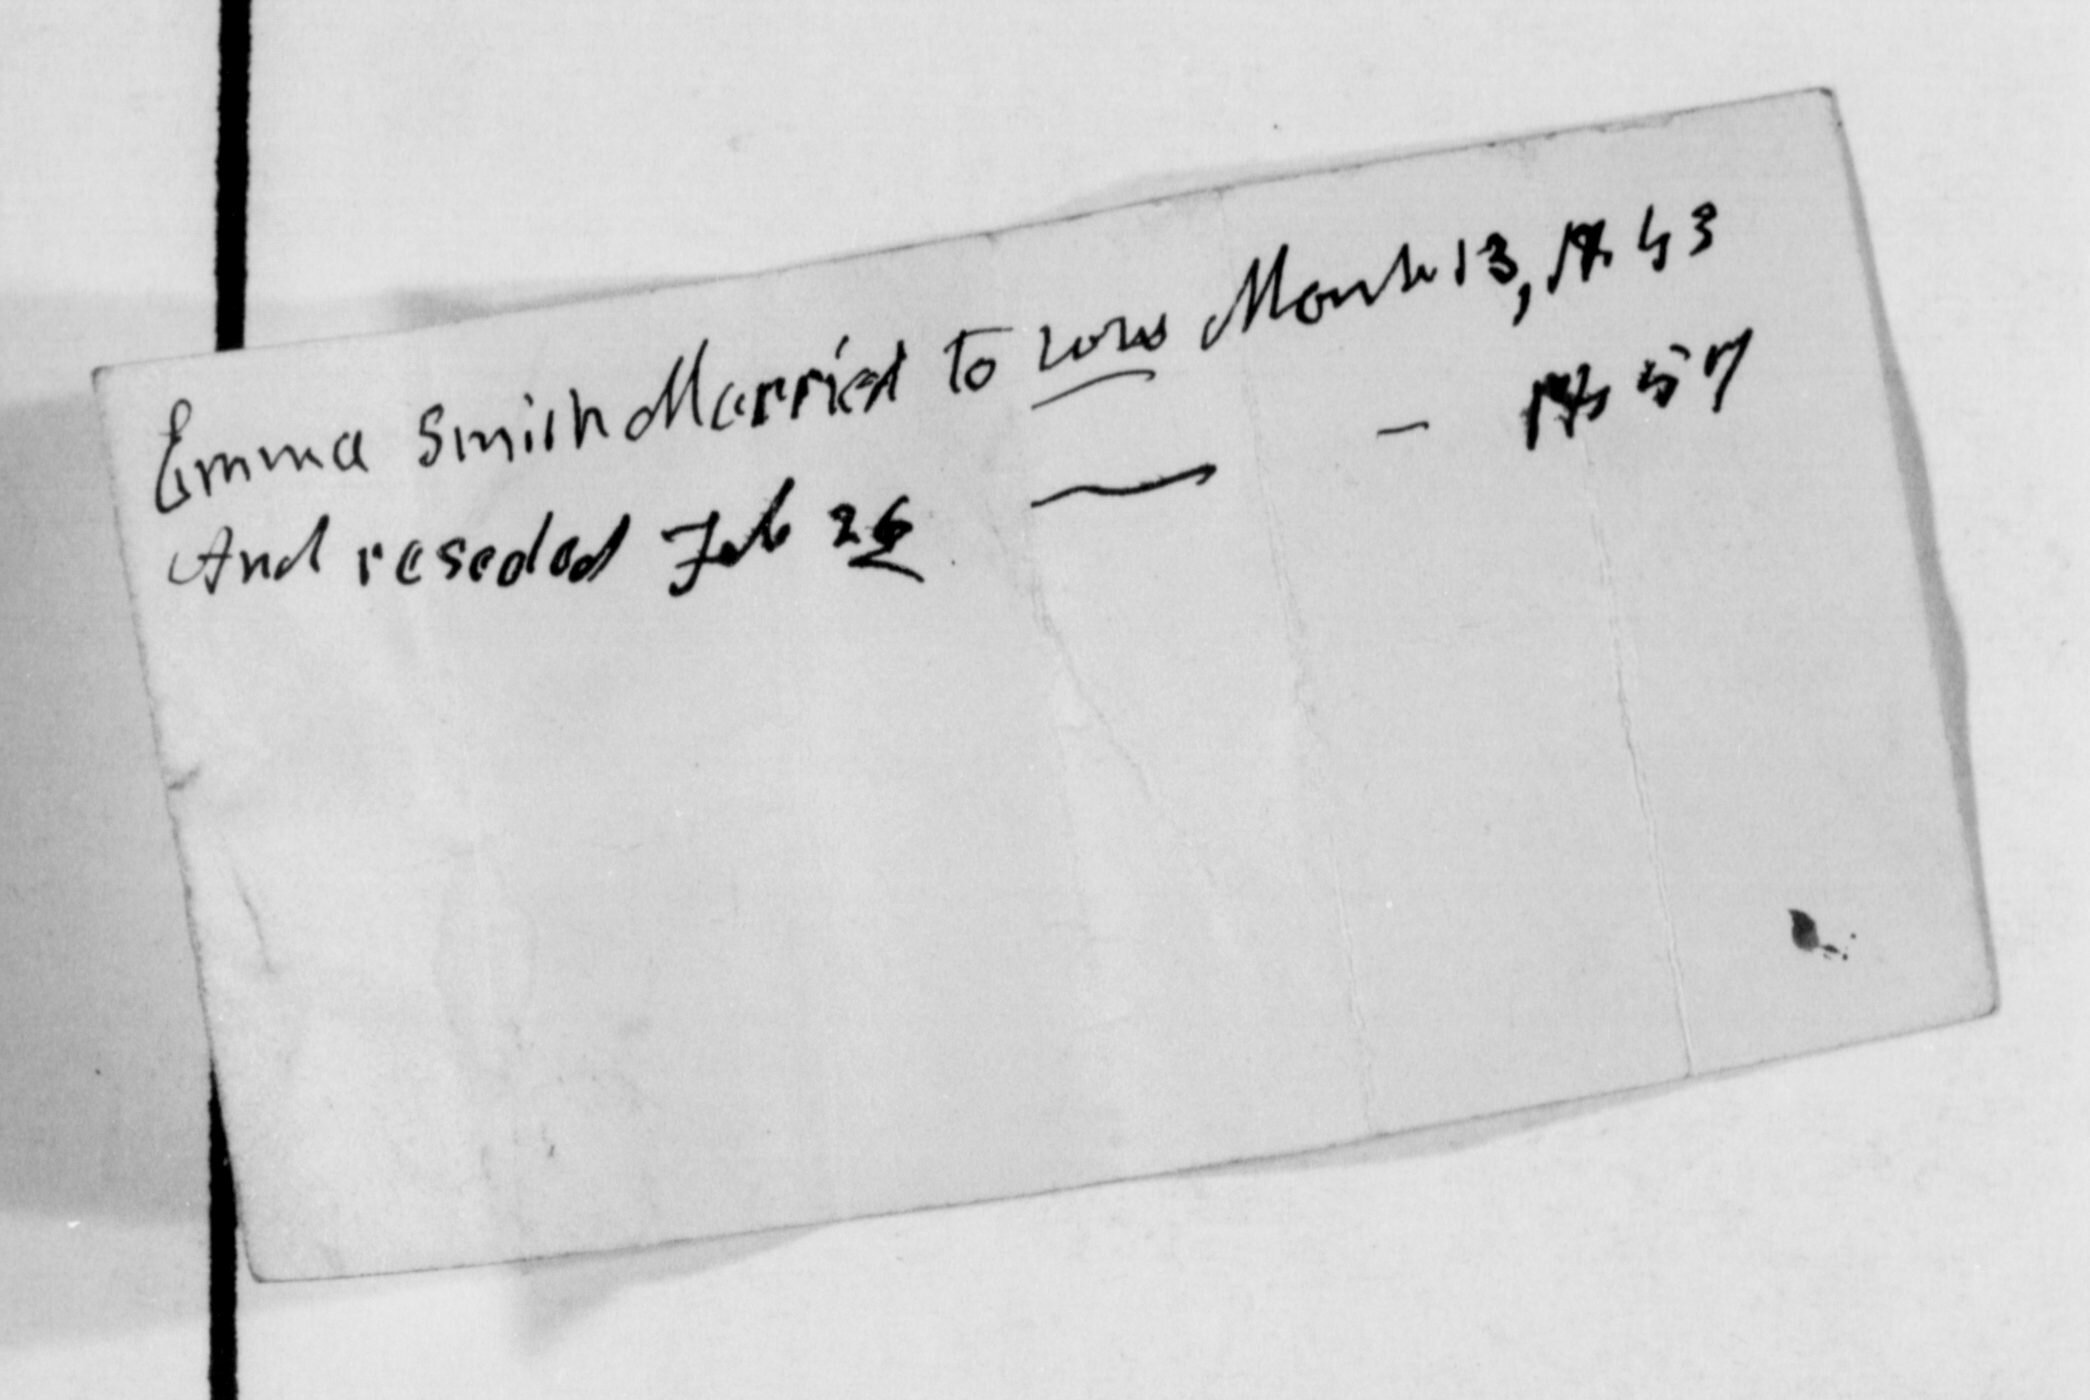 Emma Smith Married to March 13, 1853
And resealed Feb 26 — - 1857